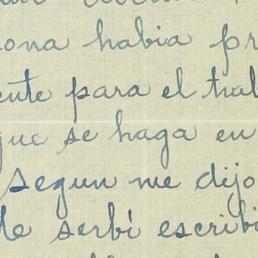 ona habia pr
ente para el tral
que se haga en
segun me dijo
de serbi escribi